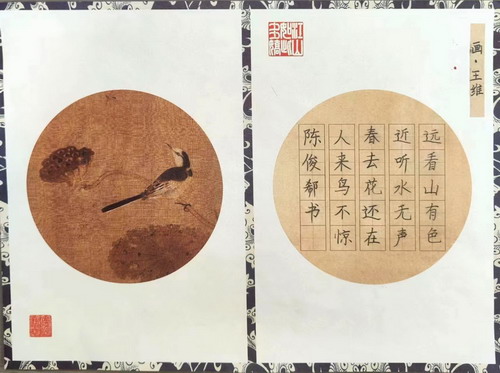 画·王维
江山如此多娇
远看山有色
近听水无声
春去花还在
人来鸟不惊
陈俊书